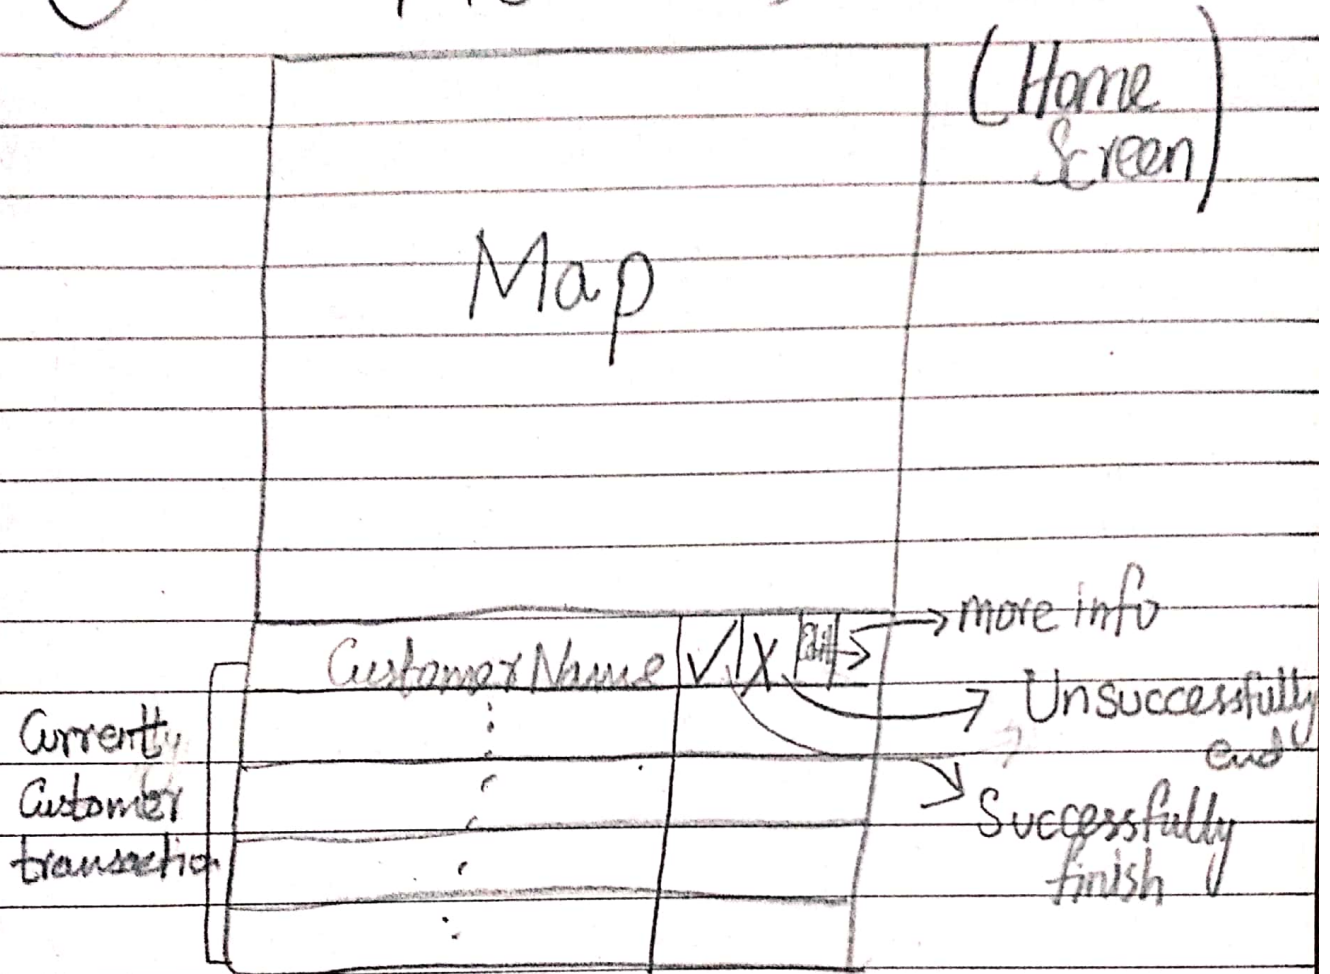 (Home
Screen)
Map
Customer Name ✓ X
more info
Unsuccessfully
end
Successfully
finish
Currently
Customer
transaction